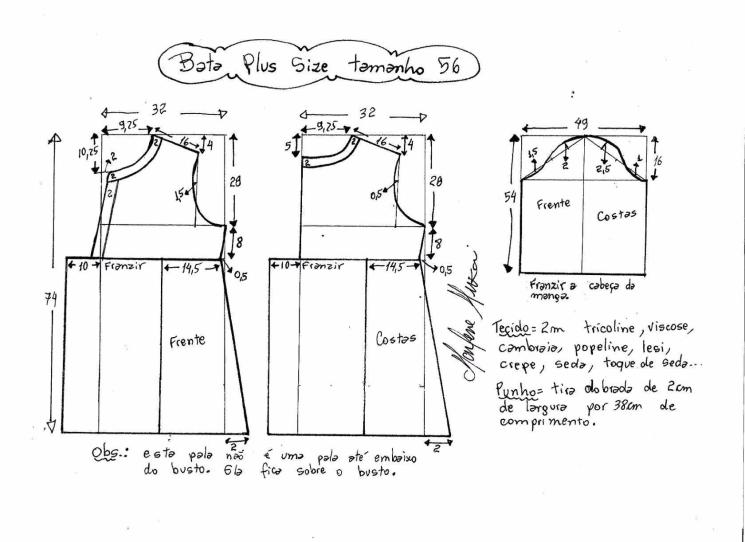 Bata Plus Size tamanho 56
32
9,25
16
4
10,25
2
2
2
2
1,5
28
8
10 Franzir
14,5
0,5
74
Frente
2
32
9,25
16
4
5
2
2
0,5
28
8
10 Franzir
14,5
0,5
Costas
2
49
1,5
2
2,5
1
16
54
Frente
Costas
Franzir a cabeça da
manga.
Marlene Mukai
Tecido = 2m tricoline, viscose,
cambraia, popeline, lesi,
crepe, seda, toque de seda...
Punho = tira dobrada de 2cm
de largura por 38cm de
comprimento.
Obs.: esta pala não é uma pala até embaixo
do busto. Ela fica sobre o busto.